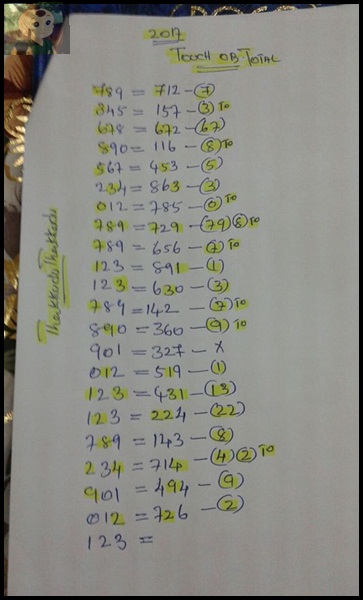 2017
TOUCH OB TOTAL
789 = 712 - (7)
345 = 157 - (3) To
678 = 672 - (67)
890 = 116 - (8) To
567 = 453 - (5)
234 = 863 - (3)
012 = 785 - (0) To
789 = 729 - (79) (8) To
789 = 656 - (7) To
123 = 891 - (1)
123 = 630 - (3)
789 = 142 - (7) To
890 = 360 - (9) To
901 = 327 - X
012 = 519 - (1)
123 = 431 - (13)
123 = 224 - (22)
789 = 143 - (8)
234 = 714 - (4) (2) To
901 = 494 - (9)
012 = 726 - (2)
123 =
Thakkudu Thakkudu